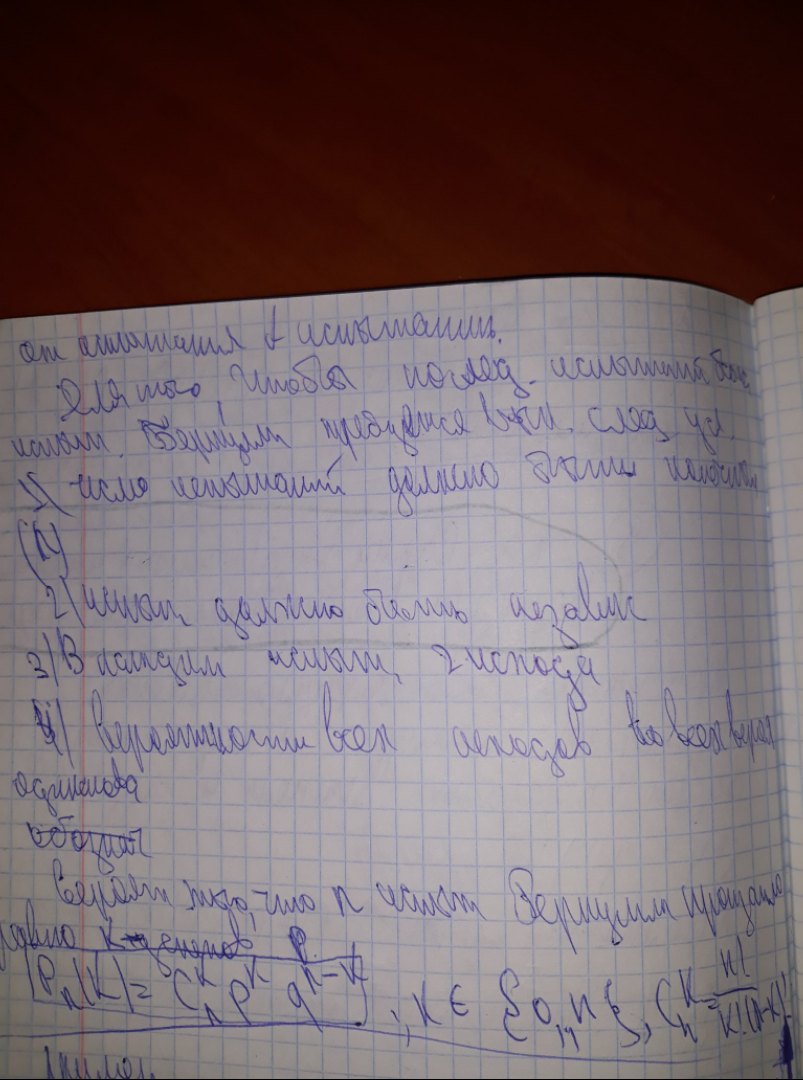 от испытания к испытанию.
Для того, чтобы послед. испытаний было
испыт. Бернулли требуется вып. след. усл.
1) число испытаний должно быть конечным
(n)
2) испыт. должно быть независ
3) В каждом испыт. 2 исхода
4) вероятности всех исходов во всех
одинакова
обознач
Вероят того, что n испыт Бернулли произошло
равно k
Pₙ(k) = Cₙᵏ pᵏ qⁿ⁻ᵏ, k ∈ {0,, n}, Cₙᵏ = n!/k!(n-k)!